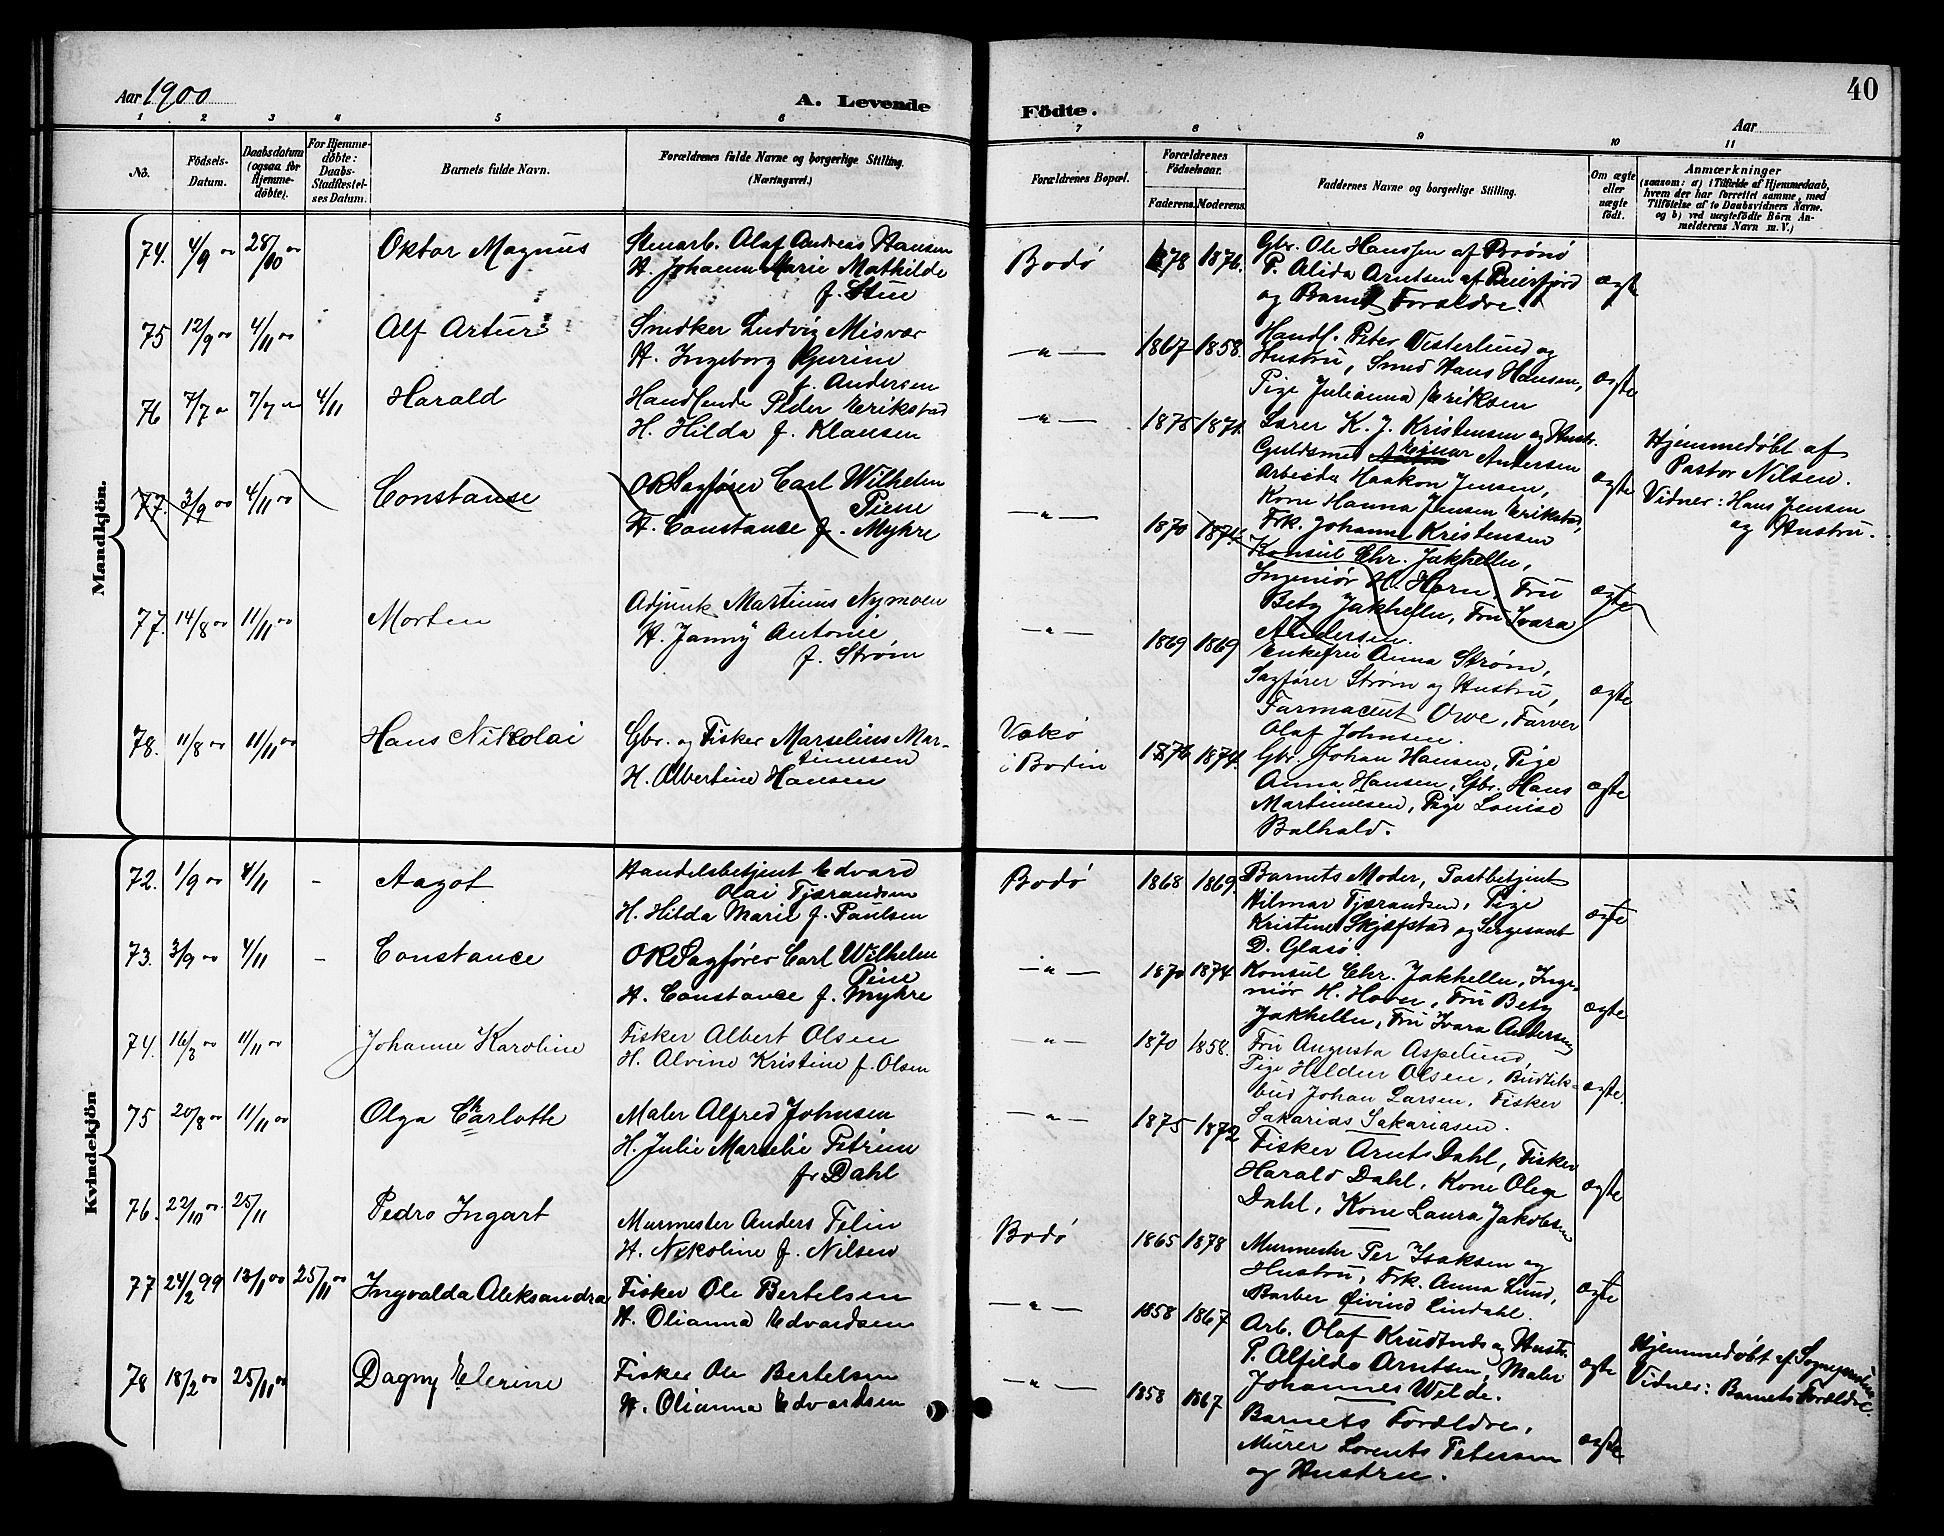 Aar 1900
A. Levende
1 2 3 4 5 6
No.
Födsels-
Datum.
Daabsdatum
(ogsaa for
Hjemme-
döbte).
For Hjemme-
döbte:
Daabs-
Stadfæstel-
ses Datum.
Barnets fulde Navn.
Forældrenes fulde Navne og borgerlige Stilling.
(Næringsvei.)
Mandkjön.
74. 4/9 00 28/10 00 Oktar Magnus
Stenarb. Olaf Andreas Hansen
H. Johanne Marie Mathilde
f. Stue
75 12/9 00 4/11 00 Alf Artur
Smedker Ludvig Misvær
H. Ingeborg Gurine
f. Andersen
76 7/7 00 7/7 00 4/11 Harald
Handlende Peder Erikstad
H. Hilda f. Klausen
77. 3/9 00 4/11 00 Constanse
ORSagfører Carl Wilhelm
Piene
H. Constance f. Myhre
77. 14/8 00 11/11 00 Morten
Adjunk Martinus Nymoen
H. Janny Antonie,
f. Strøm
78. 11/8 00 11/11 00 Hans Nikolai
Gbr. og Fisker Marselius Mar-
tinusen
H. Albertine Hansen
Kvindekjön
72. 1/9 00 4/11 - Aagot
Handelsbetjent Edvard
Olai Tjærandsen
H. Hilda Marie f. Paulsen
73. 3/9 00 4/11 - Constance
ORSagfører Carl Wilhelm
Piene
H. Constance f. Myhre
74. 16/3 00 11/11 00 Johanne Karoline
Fisker Albert Olsen
H. Alvine Kristine f. Olsen
75 20/8 00 11/11 00 Olga Charlotte
Maler Alfred Johnsen
H. Julie Marselie Petrine
f. Dahl
76. 22/10 00 25/11 Pedro Ingart
Murmester Anders Felin
H. Nikoline f. Nilsen
77 24/2 99 13/11 00 25/11 00 Ingvalda Aleksandra
Fisker Ole Bertelsen
H. Olianna Edvardsen
78 18/2 00 25/11 00 Dagny Elerine
Fisker Ole Bertelsen
H. Olianna Edvardsen
40
Födte.
Aar
7 8 9 10 11
Forældrenes Bopæl.
Forældrenes
Födselsaar.
Faderens. Moderens.
Faddernes Navne og borgerlige Stilling.
Om ægte
eller
uægte
födt.
Anmærkninger
(saasom: a) i Tilfælde af Hjemmedaab,
hvem der har forrettet samme, med
Tilföielse af to Daabsvidners Navne.
og b) ved uægtefödte Börn An-
melderens Navn m. V.)
Bodø 1878 1876.
Gbr. Ole Hanssen af Brønø
P. Alida Arntsen af Beierfjord
og Barnets Forældre.
ægte
—"— 1867 1858.
Handl. Peter Vesterlund og
Hustru, Smed Hans Hansen,
Pige Julianna Eriksen
ægte
—"— 1875 1871.
Lærer K. J. Kristensen og Hustr.
Guldsmed Einar Andersen
Arbeider Haakon Jensen,
Kone Hanna Jensen Erikstad,
Frk. Johanne Kristensen
ægte
Hjemmedøbt af
Pastor Nilsen.
Vidner: Hans Jensen
og Hustru.
—"— 1870 1874.
Konsul Chr. Jakhelln,
Ingeniør H. Horn, Fru
Betzy Jakhelln, Fru Ivara
Andersen.
ægte
—"— 1869 1869
Enkefru Anna Strøm,
Sagfører Strøm og Hustru,
Farmaceut Owe, Farver
Olaf Johnsen.
ægte
Vakø
i Bodin 1876 1874.
Gbr. Johan Hansen, Pige
Anna Hansen, Gbr. Hans
Martinusen, Pige Louise
Balhald.
ægte
Bodø 1868 1869.
Barnets Moder, Postbetjent
Hilmar Tjærandsen, Pige
Kristine Skjefstad og Sergeant
D. Glasø
ægte
—"— 1870 1874
Konsul Chr. Jakhelln, Inge-
niør H. Horn, Fru Betzy
Jakhelln, Fru Ivara Andersen
ægte
—"— 1870 1858.
Fru Augusta Aspelund,
Pige Heldur Olsen, Budtiks-
bud Johan Larsen, Fisker
Sakarias Sakariasen.
ægte.
—"— 1875 1872
Fisker Arnts Dahl, Fisker
Harald Dahl, Kone Olega
Dahl, Kone Laura Jakobsen
ægte
Bodø 1865 1878
Murmester Per Isaksen og
Hustru, Frk. Anna Lund,
Barber Øivind Lindahl.
ægte
—"— 1858 1867
Arb. Olaf Knudtnds og Hustr.
P. Alfilda Arntsen, Maler
Johannes Welde.
ægte
Hjemmedøbt af
Vidner: Barnets Forældre.
—"— 1858 1867
Barnets Forældre,
Murer Lorents Petersen
og Hustru.
ægte